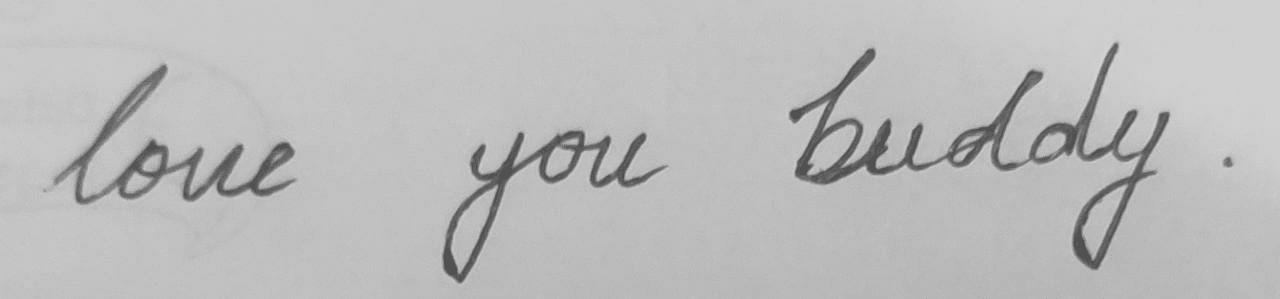 love you buddy.